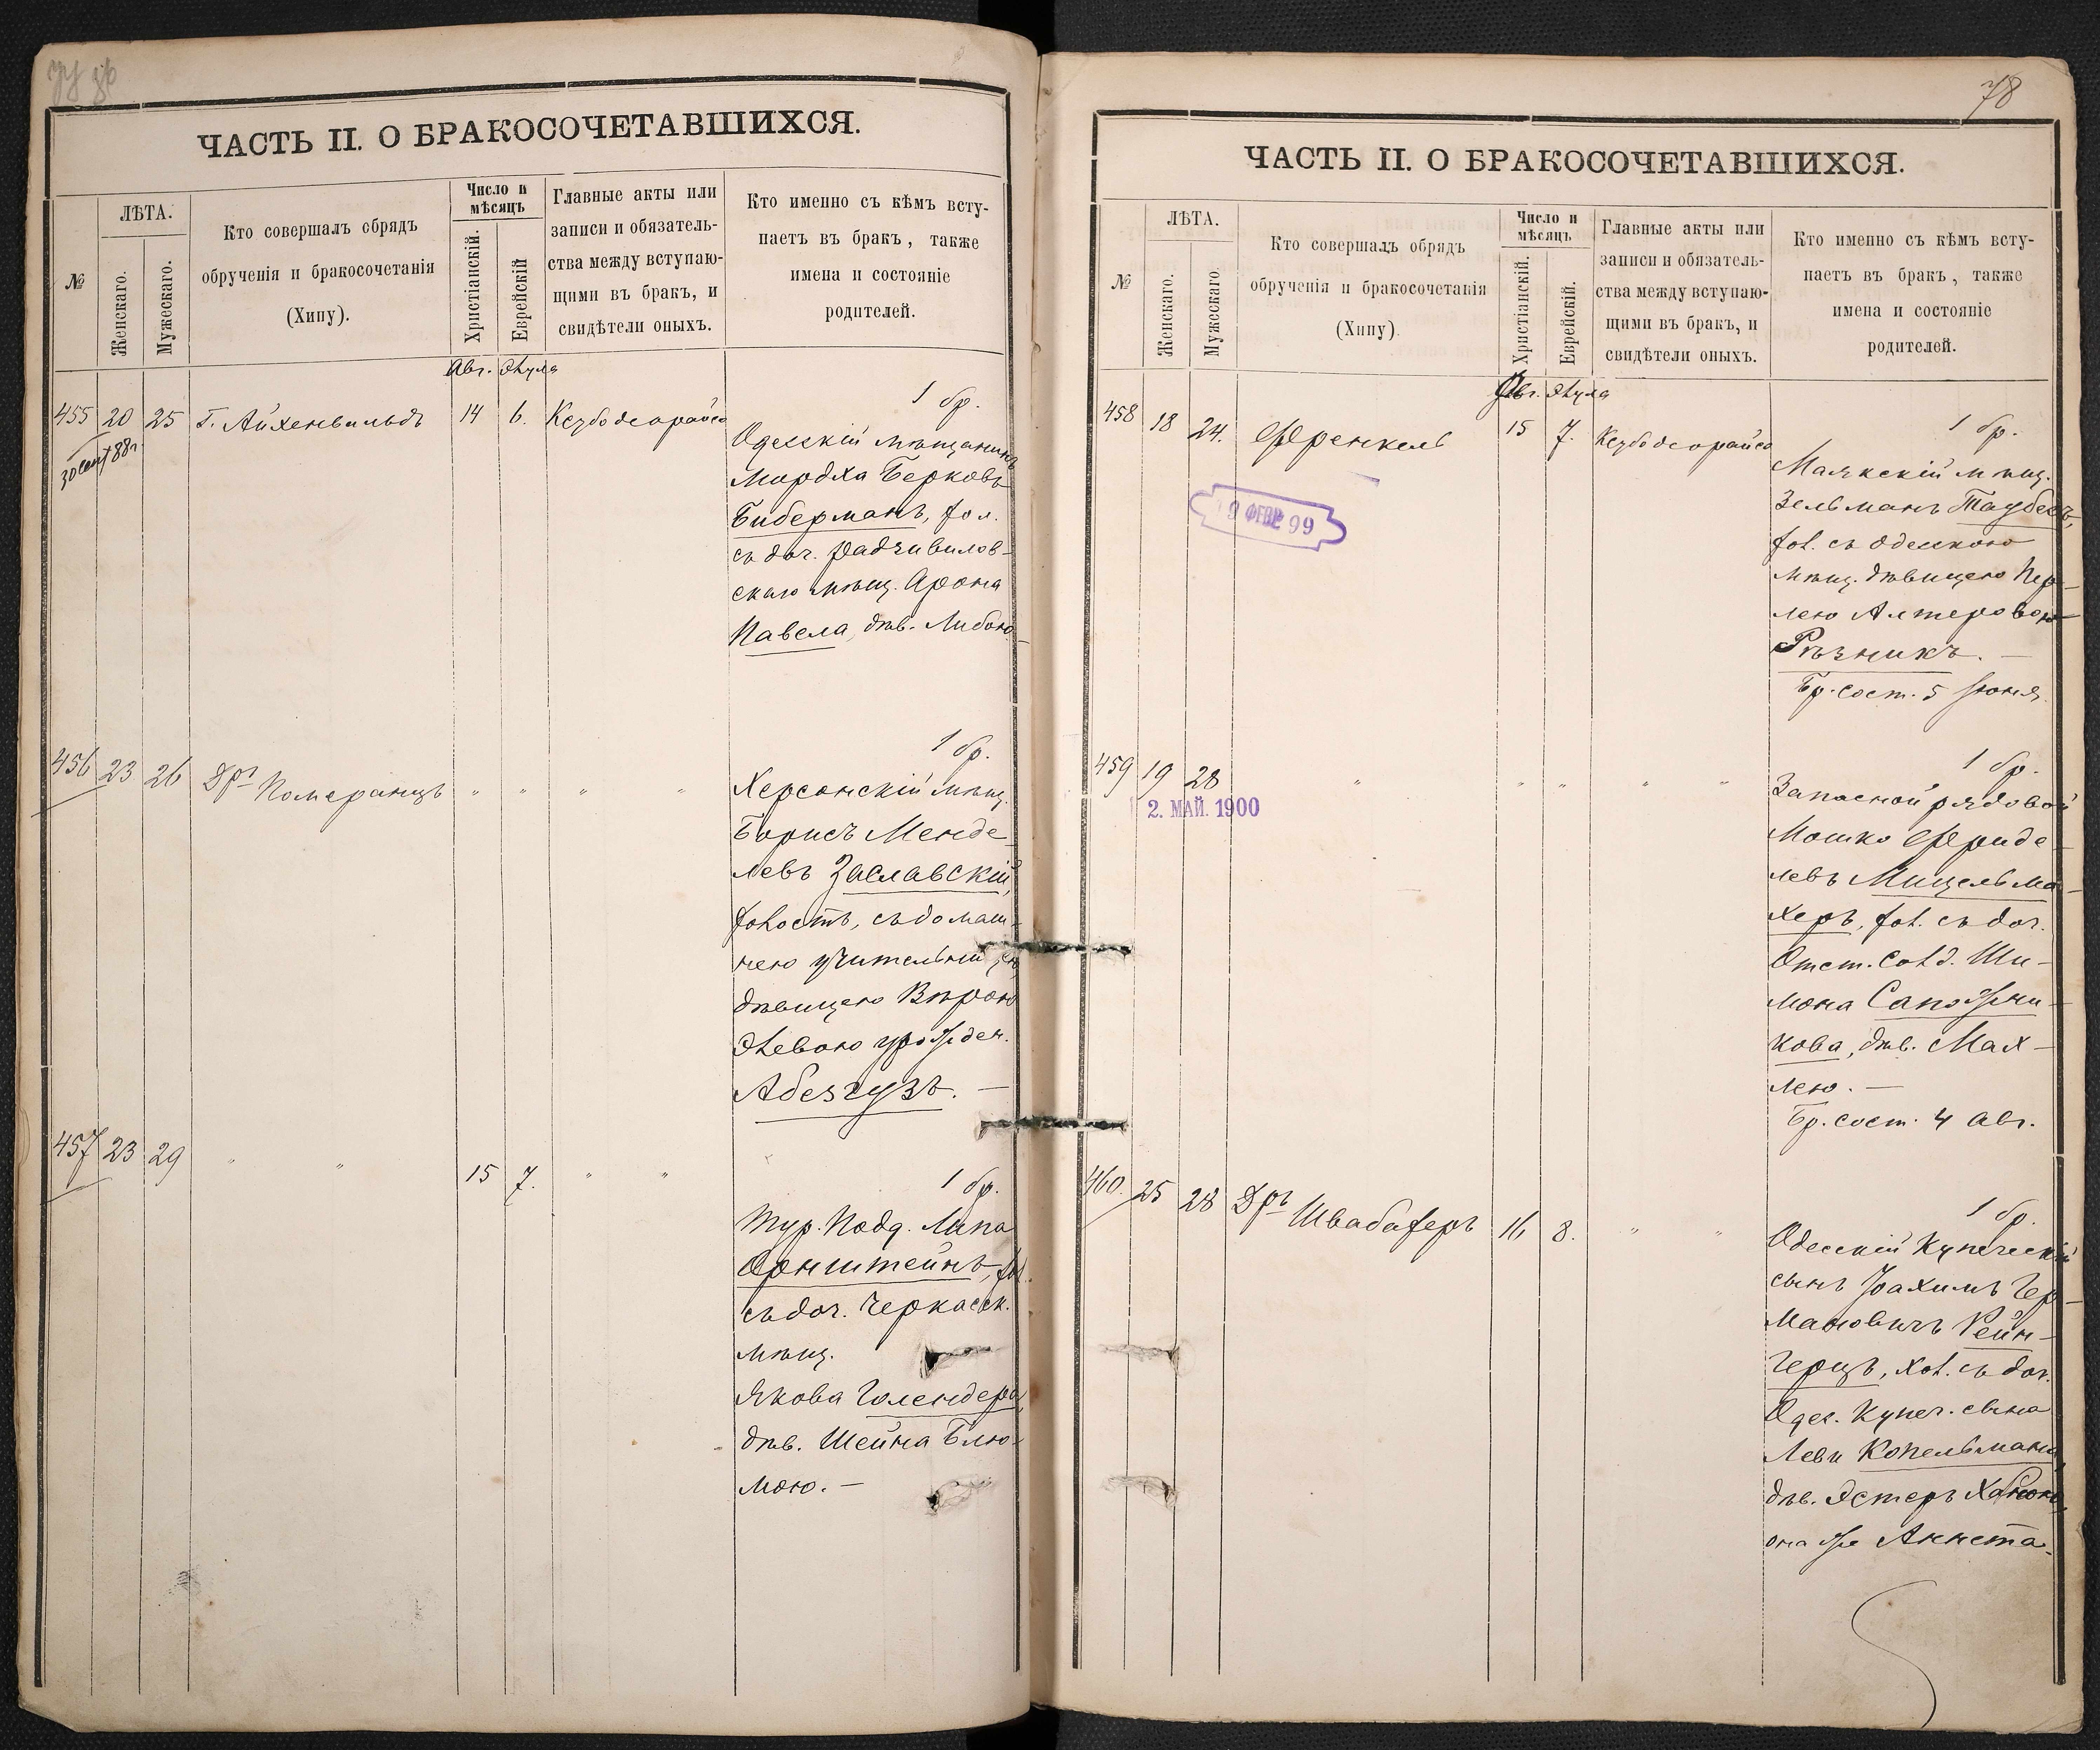 ЧАСТЬ II. О БРАКОСОЧЕТАВШИХСЯ.
№
ЛѢТА.
Женскаго.
Мужескаго.
Кто совершалъ обрядъ
обрученія и бракосочетанія
(Хипу).
Число и
мѣсяцъ
Христіанскій.
Еврейскій
Главные акты или
записи и обязатель-
ства между вступаю-
щими въ бракъ, и
свидѣтели оныхъ.
Кто именно съ кѣмъ всту-
паетъ въ бракъ, также
имена и состояніе
родителей.
Авг. Элула
455 20 25 Г. Айхенвальдъ 14 6. Кезубо деорайсо
30 сент 88г.
1 бр.
Одесскій мѣщанинъ
Мордха Берковъ
Биберманъ, хол.
съ доч. Радзивилов-
скаго мѣщ. Арона
Павела, дѣв. Любою
456 23 26 Дръ Померанцъ " " " "
1 бр.
Херсонскій мѣщ.
Борисъ Менде-
левъ Заславскій,
холостъ, съ домаш-
нею учительницею
дѣвицею Вѣрою
Элевою урожден.
Абезгузъ. —
457 23 29 " " 15 7. " "
1 бр.
Тур. Подд. Липа
Оринштейнъ, хол.
съ доч. Черкасск.
мѣщ.
Якова Голендера,
дѣв. Шейна Блю-
мою. —
78
ЧАСТЬ II. О БРАКОСОЧЕТАВШИХСЯ.
№
ЛѢТА.
Женскаго.
Мужескаго.
Кто совершалъ обрядъ
обрученія и бракосочетанія
(Хипу)
Число и
мѣсяцъ
Христіанскій.
Еврейскій.
Главные акты или
записи и обязатель-
ства между вступаю-
щими въ бракъ, и
свидѣтели оныхъ.
Кто именно съ кѣмъ всту-
паетъ въ бракъ, также
имена и состояніе
родителей.
Авг. Элула
458 18 24. Френкель 15 7. Кезубо деорайсо
9 ФЕВР 99
1 бр.
Маякскій мѣщ.
Зельманъ Таубесъ,
хол. съ одесскою
мѣщ. дѣвицею Пер-
лею Алтеровою
Рѣзникъ. —
Бр. сост. 5 Іюня.
459 19 28 " " " " "
2. МАЙ. 1900
1 бр.
Запасной рядовой
Мошко Фриде-
левъ Мицельма-
херъ, хол. съ доч.
Отст. Солд. Ши-
мона Сапожни-
кова, дѣв. Мах-
лею. —
Бр. сост. 4 Авг.
460. 25 28 Дръ Швабахеръ 16 8. " "
1 бр.
Одесскій Купеческій
сынъ Іоахимъ Гер-
мановичъ Рейн-
герцъ, хол. съ доч.
Одес. Купеч. сына
Леви Копельмана,
дѣв. Эстеръ Ханою,
она же Аннета.